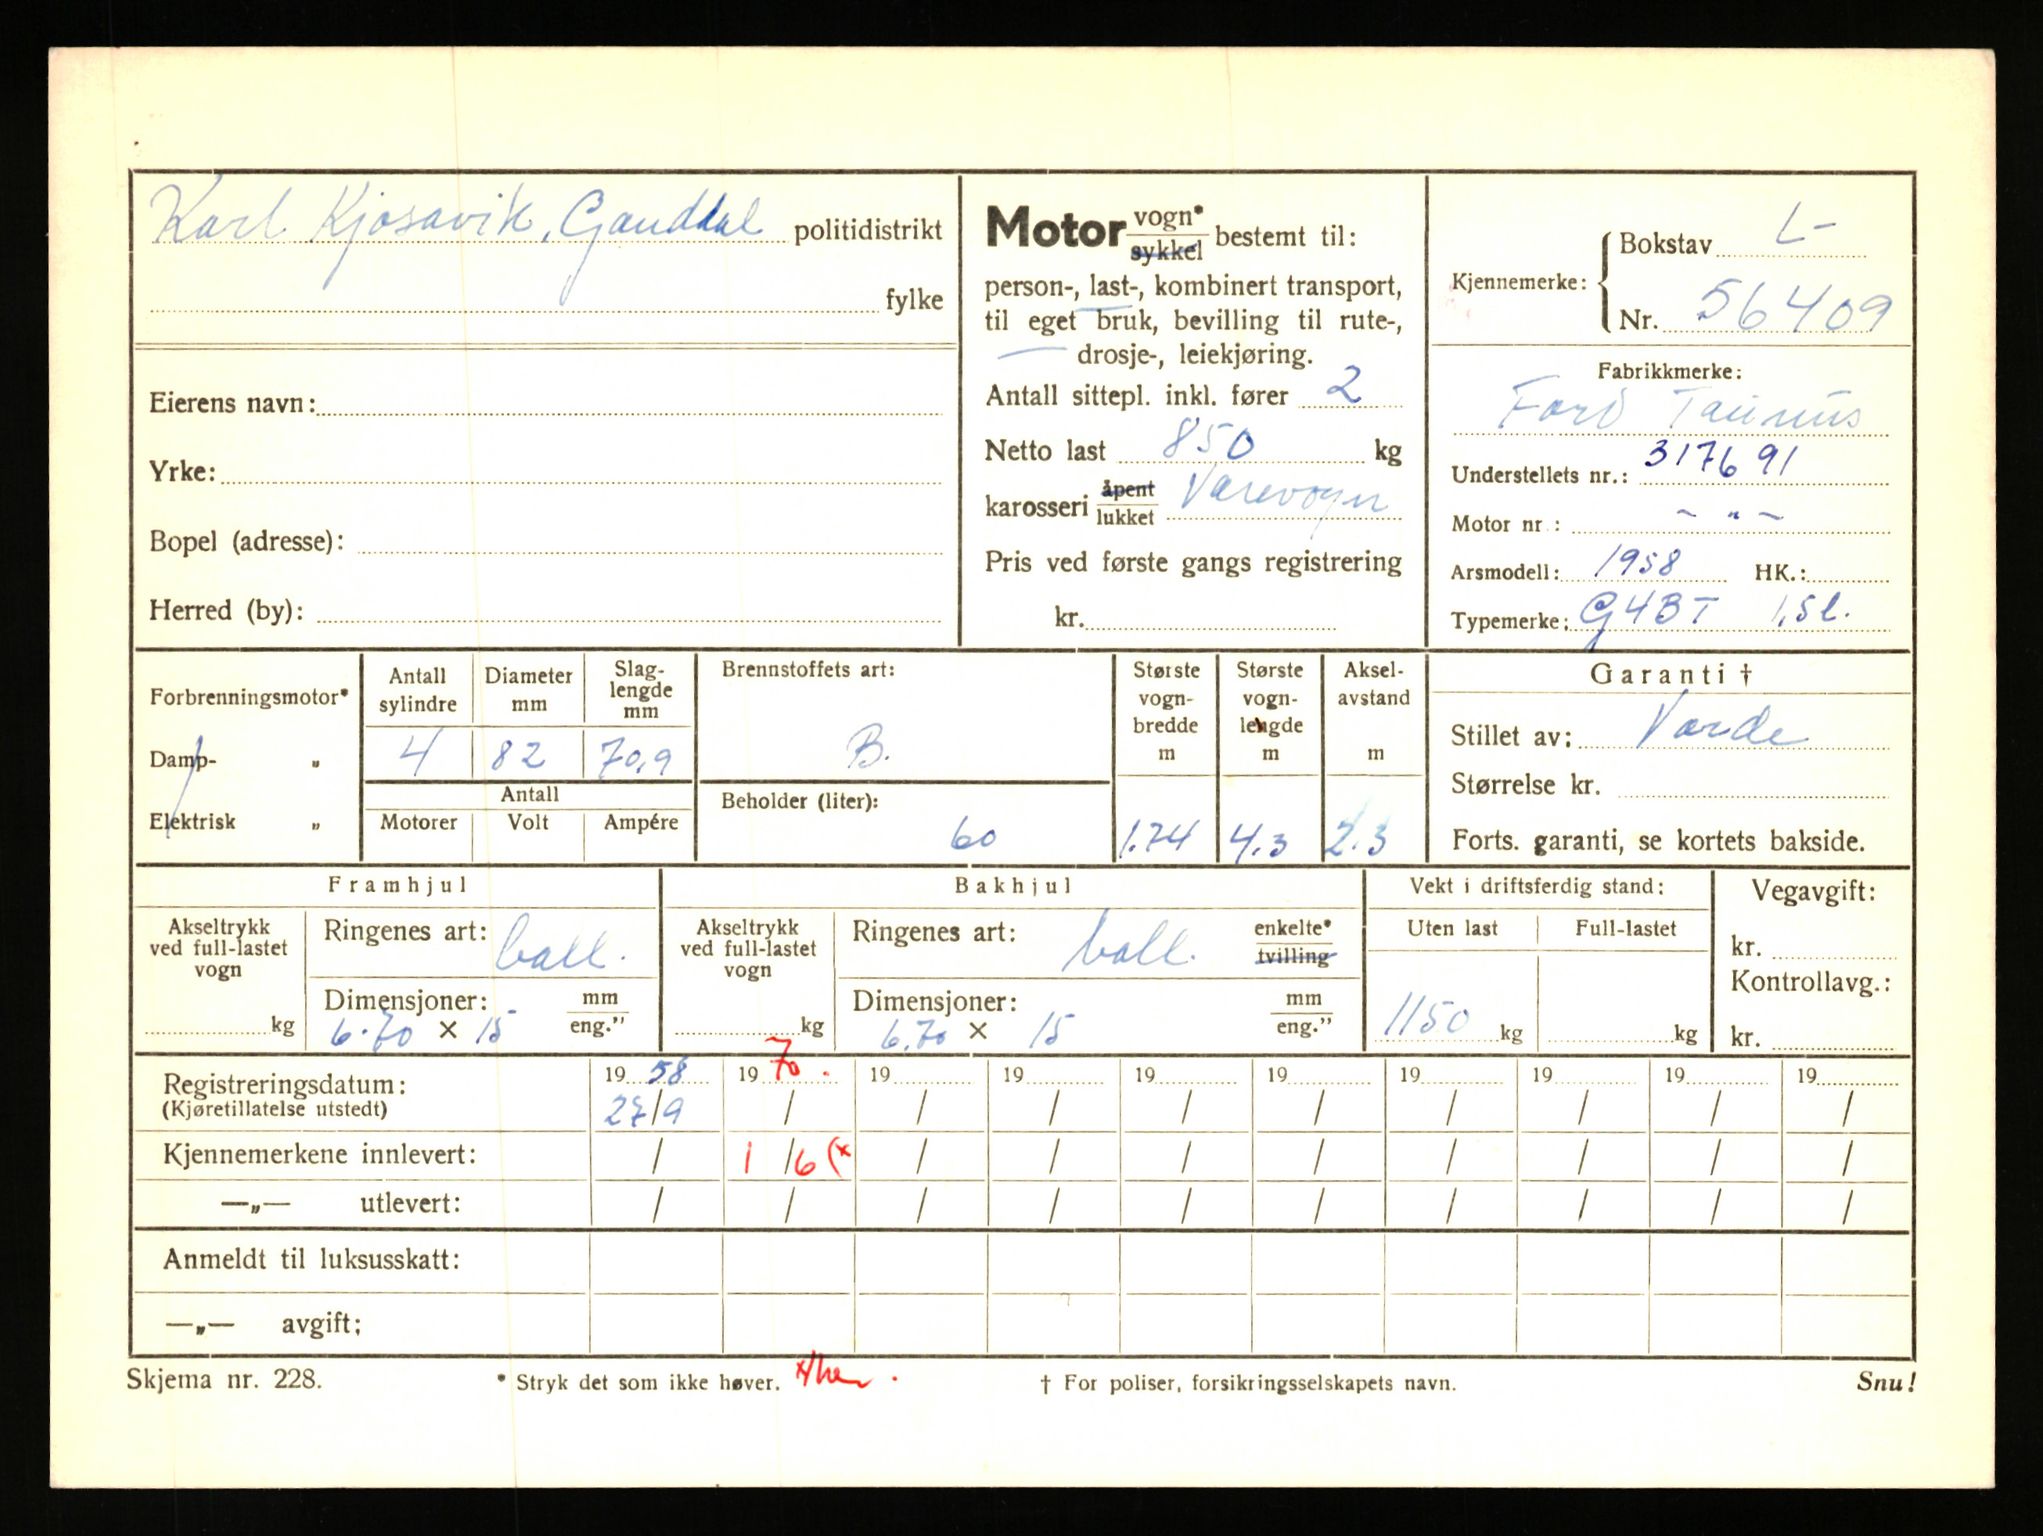 Karl Kjosavik, Ganddal politidistrikt
fylke
Eierens navn:
Yrke:
Bopel (adresse):
Herred (by):
Motor vogn* sykkel bestemt til:
person-, last-, kombinert transport,
til eget bruk, bevilling til rute-,
drosje-, leiekjøring.
Antall sittepl. inkl. fører 2
Netto last 850 kg
karosseri åpent lukket Varevogn
Pris ved første gangs registrering
kr.
Kjennemerke: Bokstav L-
Nr. 56409
Fabrikkmerke:
Ford Taunus
Understellets nr.: 317691
Motor nr.: - " -
Arsmodell: 1958 HK.:
Typemerke: G4BT 1,5 l.
Forbrenningsmotor*
Damp- "
Elektrisk "
Antall sylindre 4
Diameter mm 82
Slag-lengde mm 70,9
Antall
Motorer Volt Ampére
Brennstoffets art:
B.
Beholder (liter):
60
Største vogn-bredde m 1.74
Største vogn-lengde m 4.3
Aksel-avstand m 2.3
Garanti †
Stillet av: Varde
Størrelse kr.
Forts. garanti, se kortets bakside.
Framhjul
Akseltrykk ved full-lastet vogn
kg
Ringenes art: ball.
Dimensjoner: mm eng."
6.70 × 15
Bakhjul
Akseltrykk ved full-lastet vogn
kg
Ringenes art: ball. enkelte* tvilling
Dimensjoner: mm eng."
6.70 × 15
Vekt i driftsferdig stand:
Uten last Full-lastet
1150 kg kg
Vegavgift:
kr.
Kontrollavg.:
kr.
Registreringsdatum: 19 58 19 70. 19 19 19 19 19 19 19 19
(Kjøretillatelse utstedt) 27/9 / / / / / / / / /
Kjennemerkene innlevert: / 1/6 (x / / / / / / / /
—„— utlevert: / / / / / / / / / /
Anmeldt til luksusskatt:
—„— avgift;
Skjema nr. 228. * Stryk det som ikke høver. † For poliser, forsikringsselskapets navn. Snu!